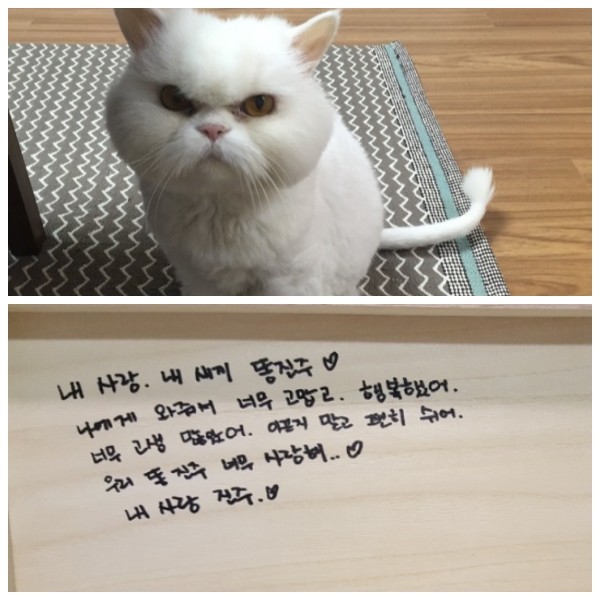 내 사랑. 내 새끼 똥진주♡
나에게 와줘서 너무 고맙고. 행복했어.
너무 고생 많았어. 아프지 말고 편히 쉬어.
우리 똥진주 너무 사랑해..♡
내 사랑 진주.♡